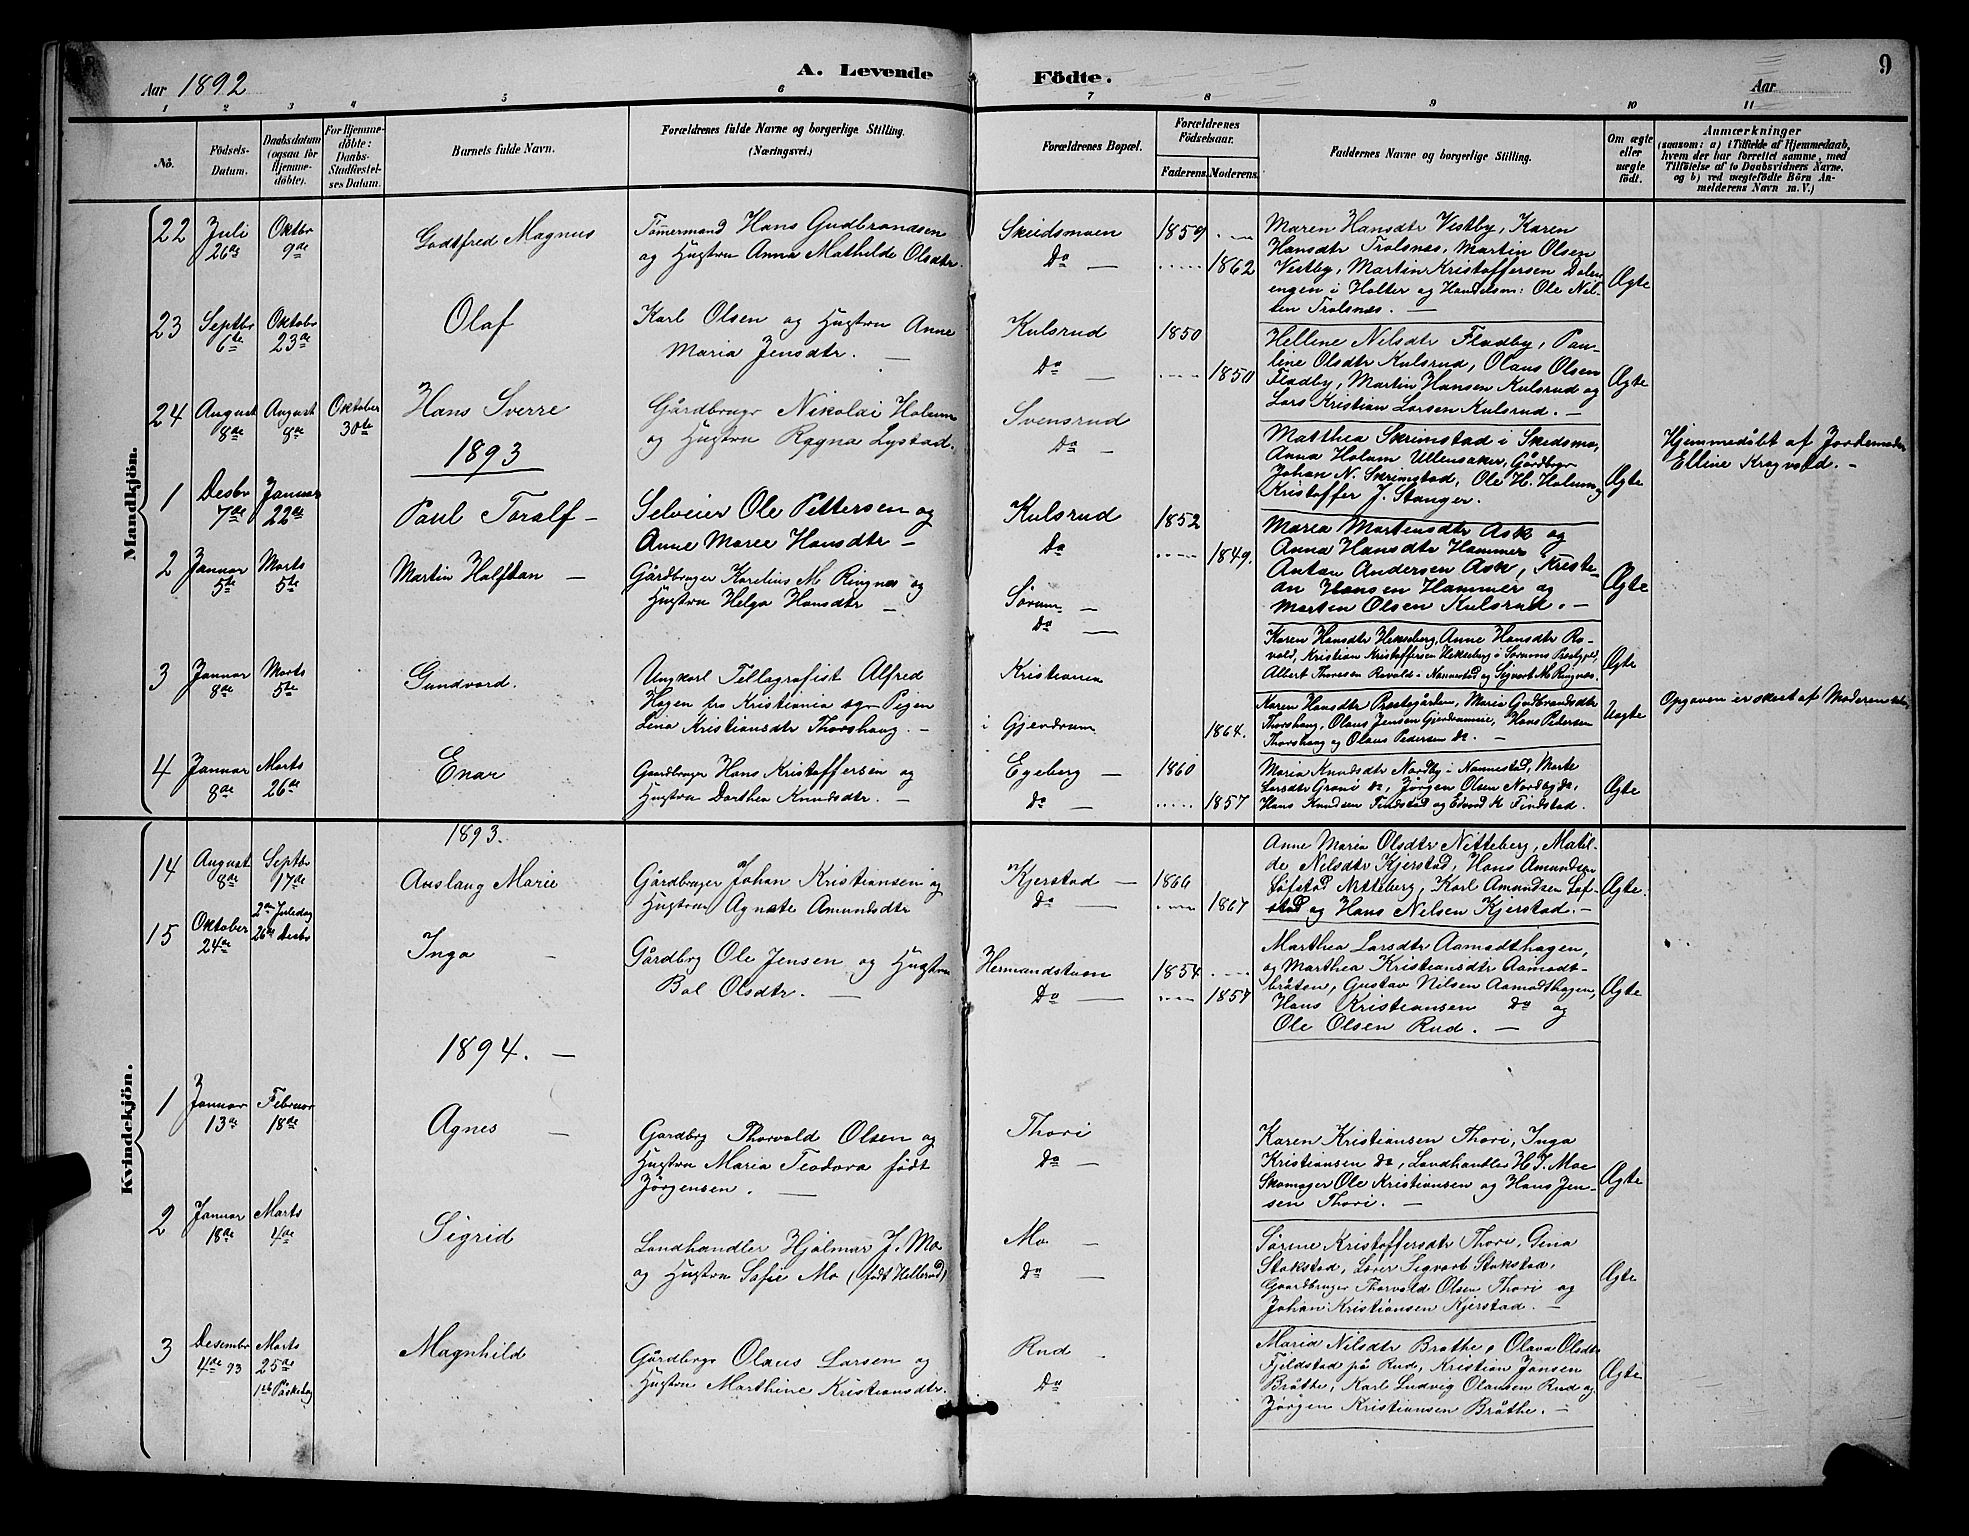 Aar 1892
A. Levende Födte.
Aar
9
1 2 3 4 5 6 7 8 9 10 11
Nô.
Födsels-
Datum.
Daabsdatum
(ogsaa for
Hjemme-
döbte).
For Hjemme-
döbte:
Daabs-
Stadfæstel-
ses Datum.
Barnets fulde Navn.
Forældrenes fulde Navne og borgerlige Stilling.
(Næringsvei.)
Forældrenes Bopæl.
Forældrenes
Födselsaar.
Faderens. Moderens.
Faddernes Navne og borgerlige Stilling.
Om ægte
eller
uægte
födt.
Anmærkninger
(saasom: a) i Tilfælde af Hjemmedaab,
hvem der har forrettet samme, med
Tilföielse af to Daabsvidners Navne,
og b) ved uægtefödte Börn An-
melderens Navn m. V.)
Mandkjön.
22 Juli 26de
Oktbr 9de
Godtfred Magnus
Tömermand Hans Gudbrandsen
og Hustru Anna Mathilde Olsdtr.
Skedsmoen 1859
Do — 1862
Maren Hansdtr Vestby, Karen
Hansdtr Trolsnæs, Martin Olsen
Vestby, Martin Kristoffersen Dalen
engen i Holter og Handelsm: Ole Nil-
sen Trolsnæs. —
Ægte
23 Septbr 6te
Oktobr 23de
Olaf
Karl Olsen og Hustru Anne
Maria Jensdtr. —
Kulsrud 1850
Do — 1850
Hellene Nilsdtr Fladby, Pau-
line Olsdtr Kulsrud, Olaus Olsen
Fladby, Martin Hansen Kulsrud og
Lars Kristian Larsen Kulsrud. —
Ægte
24 August 8de
August 8de
Oktober 30te
Hans Sverre
Gårdbrugr Nikolai Holum
og Hustru Ragna Lystad.
Svensrud
Do —
Matthea Skrimstad i Skedsmo,
Anna Holum Ullensaker, Gårdbrgr
Johan N. Skrimstad, Ole H. Holum og
Kristoffer J. Stanger.
Ægte
Hjemmedöbt af Jordemoder
Elline Kragvold. —
1893
1 Desbr 7de
Januar 22de
Paul Toralf —
Selveier Ole Pettersen og
Anne Marie Hansdtr —
Kulsrud 1852
Do 1849.
Maria Martensdtr Ask og
Anna Hansdtr Hammer
Anton Andersen Ask, Kriste-
an Hansen Hammer og
Martin Olsen Kulsrud. —
Ægte
2 Januar 5te
Marts 5te
Martin Halftan —
Gårdbruger Karelius M Ringnæs og
Hustru Helga Hansdtr —
Sörum —
Do —
Karen Hansdtr Hekseberg, Anne Hansdtr Ro-
vold, Kristian Kristoffersen Hekseberg i Sörums Prestegjeld,
Albert Thoresen Rovold i Nannestad og Sigvart M. Ringnæs.
Ægte
3 Januar 8de
Marts 5te
Gundvord.
Ungkarl Tellagrafist Alfred
Hagen fra Kristiania og Pigen
Lina Kristiansdtr Thorshaug. —
Kristiania
i Gjerdrum 1864.
Karen Hansdtr Prestegården, Maria Gudbrandsdtr
Thorshaug, Olaus Jensen Gjerdrumeie, Hans Pedersen
Thorshaug og Olaus Pedersen Do. —
Uægte
Opgaven er skeet af Moderen
4 Januar 8de
Marts 26de
Enar
Gaardbruger Hans Kristoffersen og
Hustru Dorthea Knudsdtr. —
Egeberg — 1860
Do — 1857
Maria Knudsdtr Nordby i Nannestad, Marte
Larsdtr Grani Do, Jörgen Olsen Nordby do,
Hans Knudsen Findstad og Edvard K Findstad.
Ægte
Kvindekjön.
1893.
14 August 8de
Septbr 17de
Auslaug Marie
Gårdbruger Johan Kristiansen og
Hustru Agnete Amundsdtr
Kjerstad — 1866
Do — 1867
Anne Maria Olsdtr Nitteberg, Matil-
de Nilsdtr Kjerstad, Hans Amundsen
Löfstad Nitteberg, Karl Amundsen Löf-
stad og Hans Nelsen Kjerstad. —
Ægte.
15 Oktober 24de
2den Juledag
26de Desbr
Inga —
Gårdbrg Ole Jensen og Hustru
Bol Olsdtr. —
Hermandstuen 1854
Do — 1857
Marthea Larsdtr Aamodthagen,
og Marthea Kristiansdtr Aamodt-
bråten, Gustav Nilsen Aamodthagen,
Hans Kristiansen Do og
Ole Olsen Rud. —
Ægte
1894. —
1 Januar 13de
Februar 18de
Agnes —
Gardbrg Thorvald Olsen og
Hustru Maria Teodora födt
Jörgensen. —
Thori
Do —
Karen Kristiansen Thori, Inga
Kristiansen do, Landhandler H. J. Moe
Skomager Ole Kristiansen og Hans Jen-
sen Thori. —
Ægte
2 Januar 18de
Marts 4de
Sigrid
Landhandler Hjalmar J. Mo
og Hustru Sofie Mo (födt Hellerud)
Mo —
Do —
Sörine Kristoffersdtr Thori, Gina
Stokstad, Lærer Sigvart Stokstad,
Gaardbruger Thorvald Olsen Thori og
Johan Kristiansen Kjerstad. —
Ægte
3 Desembr 4de 93
Marts 25de
1ste Påskedag
Magnhild
Gårdbergr Olaus Larsen og
Hustru Marthine Kristiansdtr.
Rud —
Do
Maria Nilsdtr Bråthe, Olava Olsdtr
Fjeldstad på Rud, Kristian Jansen
Bråthe, Karl Ludvig Olausen Rud og
Jörgen Kristiansen Bråthe. —
Ægte